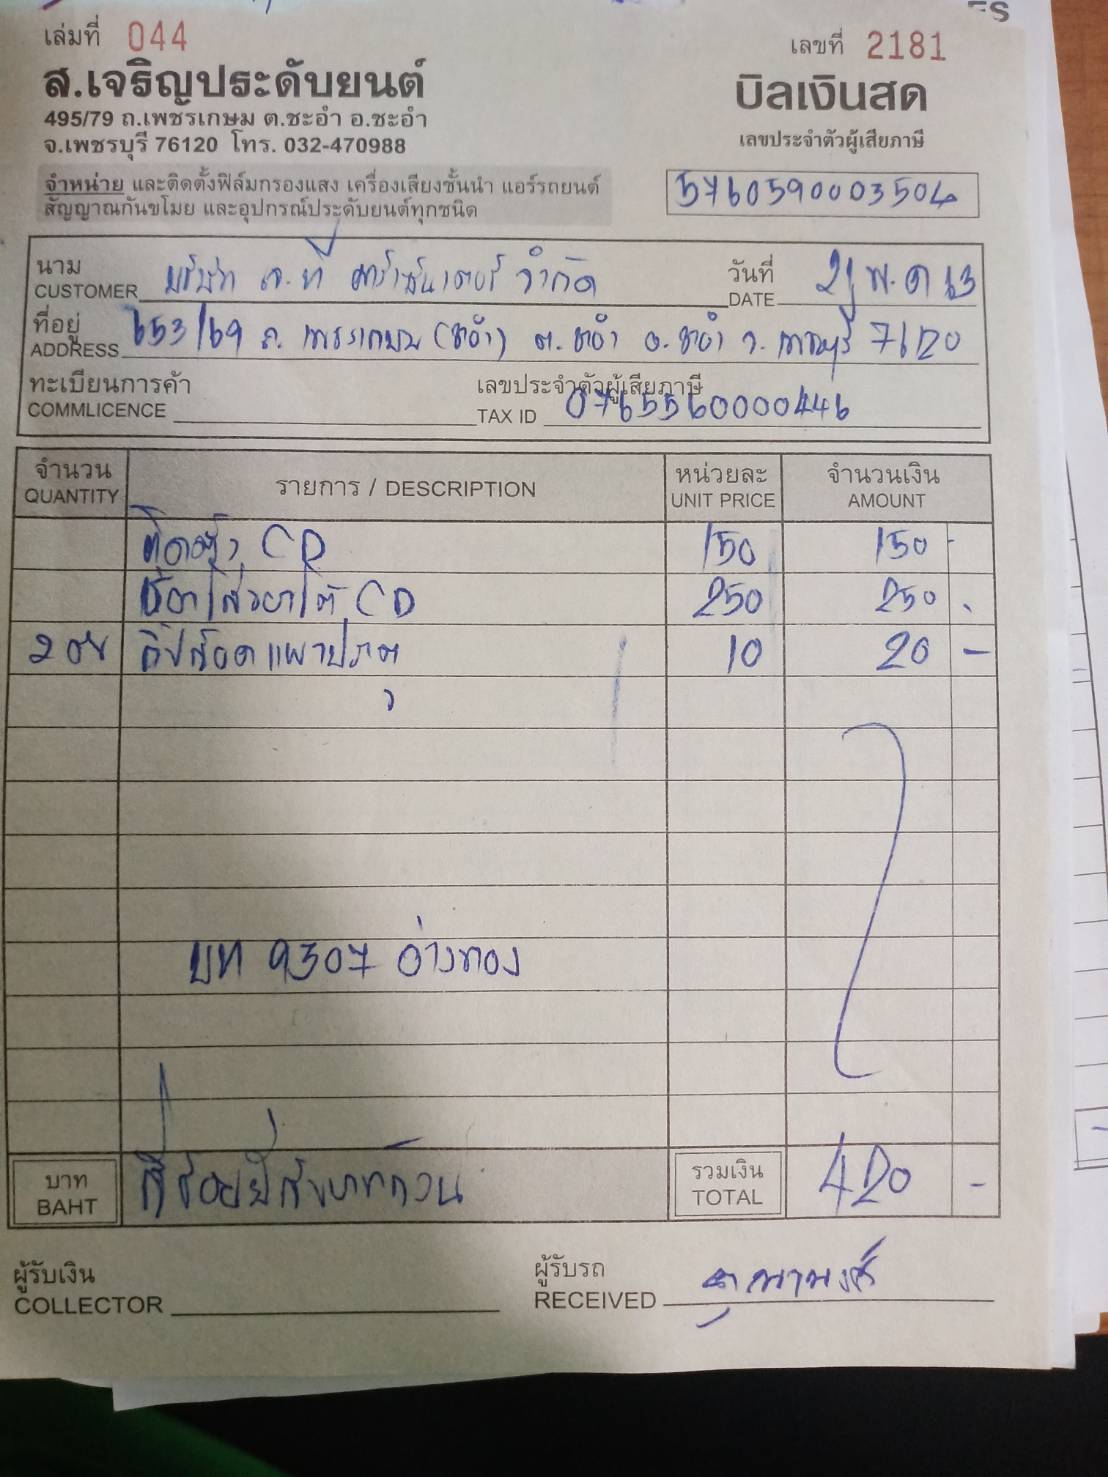 เล่มที่ 044
เลขที่ 2181
ส.เจริญประดับยนต์
บิลเงินสด
495/79 ถ.เพชรเกษม ต.ชะอำ อ.ชะอำ
จ.เพชรบุรี 76120 โทร. 032-470988
เลขประจำตัวผู้เสียภาษี
5760590003504
จำหน่าย และติดตั้งฟิล์มกรองแสง เครื่องเสียงชั้นนำ แอร์รถยนต์
สัญญาณกันขโมย และอุปกรณ์ประดับยนต์ทุกชนิด
นาม
CUSTOMER บริษัท เจ.ที จำกัด
วันที่
DATE 21 พ.ค 63
ที่อยู่
ADDRESS 653/69 ถ. เพชรเกษม (ชะอำ) ต.ชะอำ อ.ชะอำ จ.เพชรบุรี 76120
ทะเบียนการค้า
COMMLICENCE
เลขประจำตัวผู้เสียภาษี
TAX ID 0765560000446
จำนวน
QUANTITY
รายการ / DESCRIPTION
หน่วยละ
UNIT PRICE
จำนวนเงิน
AMOUNT
ติดตั้ง CD 150 150 -
CD 250 250 -
2 ตัว 10 20 -
บท 9307 อ่างทอง
บาท
BAHT
สี่ร้อยยี่สิบบาทถ้วน
รวมเงิน
TOTAL
420 -
ผู้รับเงิน
COLLECTOR
ผู้รับรถ
RECEIVED